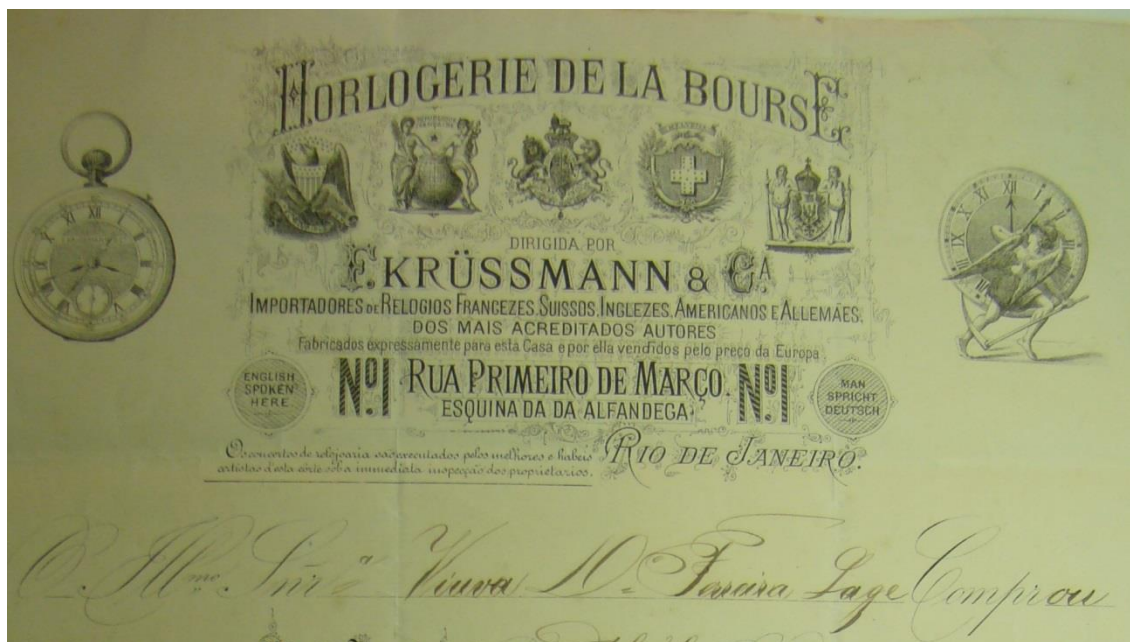 HORLOGERIE DE LA BOURSE
DIRIGIDA POR
F. KRÜSSMANN & CA
IMPORTADORES DE RELOGIOS FRANCEZES, SUISSOS, INGLEZES, AMERICANOS E ALLEMÃES,
DOS MAIS ACREDITADOS AUTORES
Fabricados expressamente para esta Casa e por ella vendidos pelo preço da Europa
ENGLISH
SPOKEN
HERE.
Nº1 RUA PRIMEIRO DE MARÇO. Nº1
ESQUINA DA DA ALFANDEGA
MAN
SPRICHT
DEUTSCH
Os concertos de relojoaria são executados pelos melhores e habeis
artistas d'esta côrte sob a immediata inspecção dos proprietarios.
RIO DE JANEIRO.
O Illmo Snr a Viuva D. Ferreira Lage Comprou